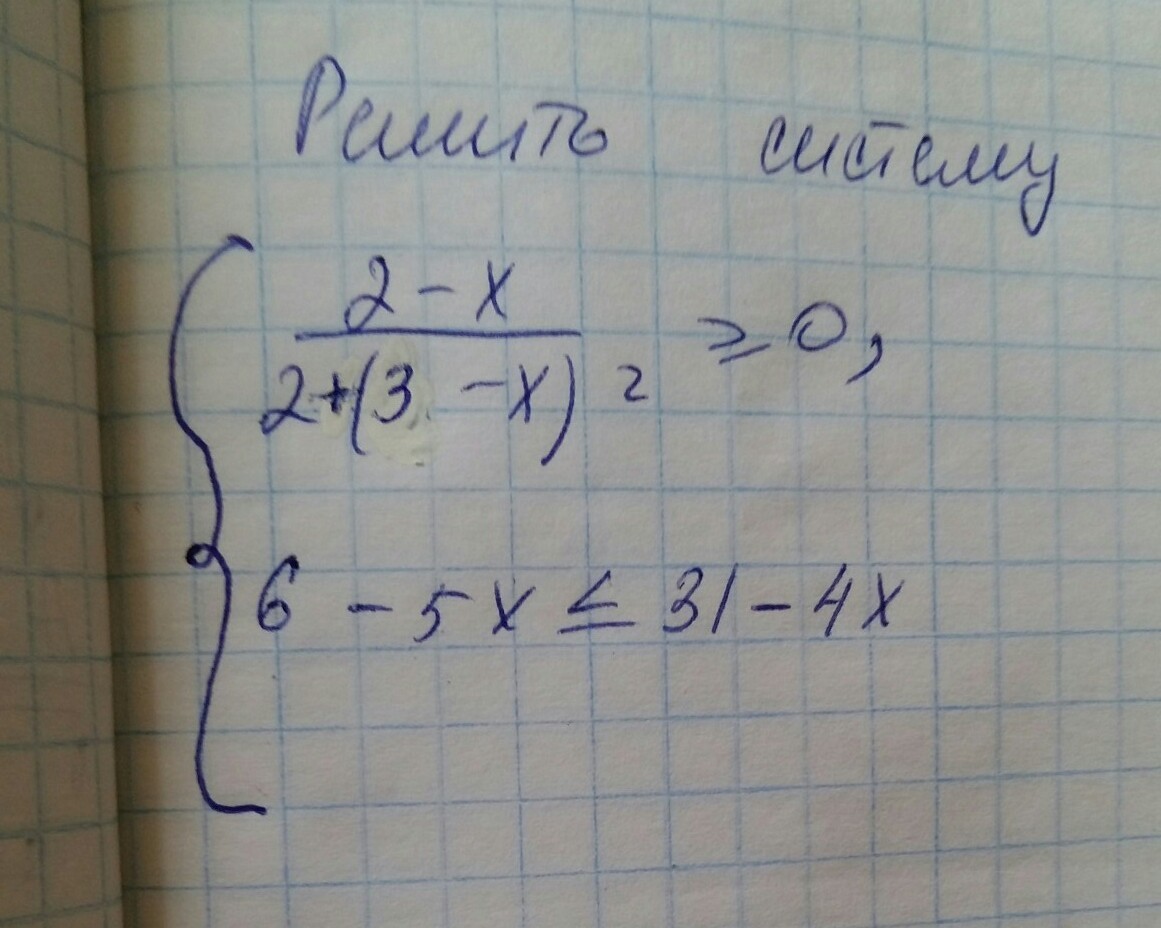 Решить систему
2 - x
2+(3 -x) 2 ≥ 0,
6 - 5x ≤ 31 - 4x